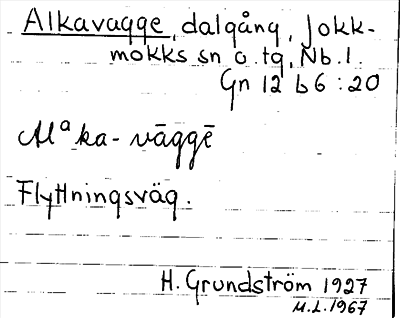 Alkavagge, dalgång, Jokk-
mokks sn o. tg, Nb. l.
Gn 12 b 6 : 20
Alᵃka-vāggē
Flyttningsväg.
H. Grundström 1927
M.L. 1967